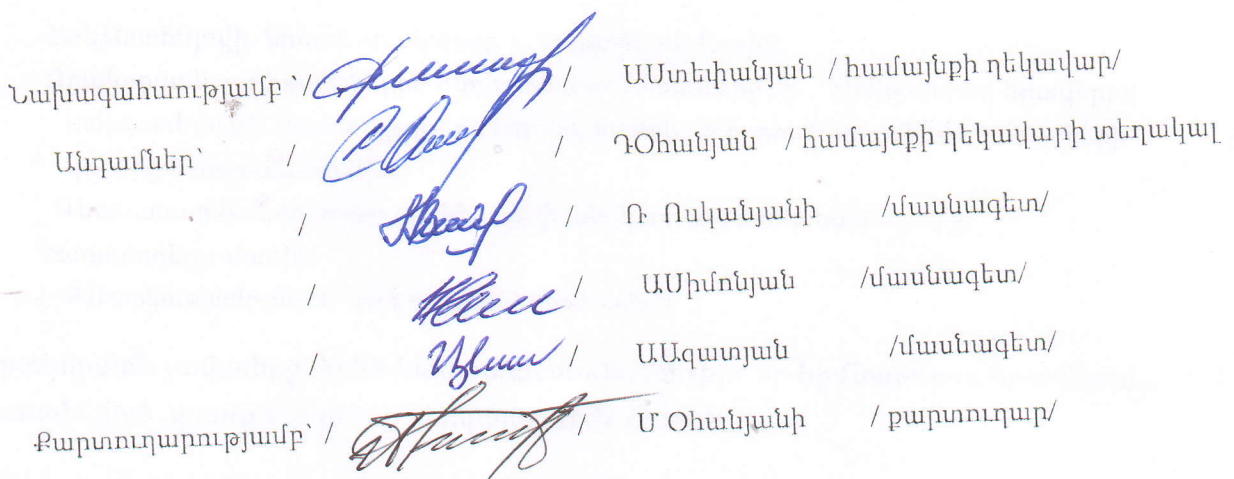 Նախագահությամբ / / ԱՍտեփանյան / համայնքի ղեկավար/
Անդամներ՝ / / ԴՕհանյան / համայնքի ղեկավարի տեղակալ
/ / Ռ Ոսկանյանի /մասնագետ/
/ / ԱՍիմոնյան /մասնագետ/
/ / ԱԱզատյան /մասնագետ/
Քարտուղարությամբ՝ / / Մ Օհանյանի / քարտուղար/